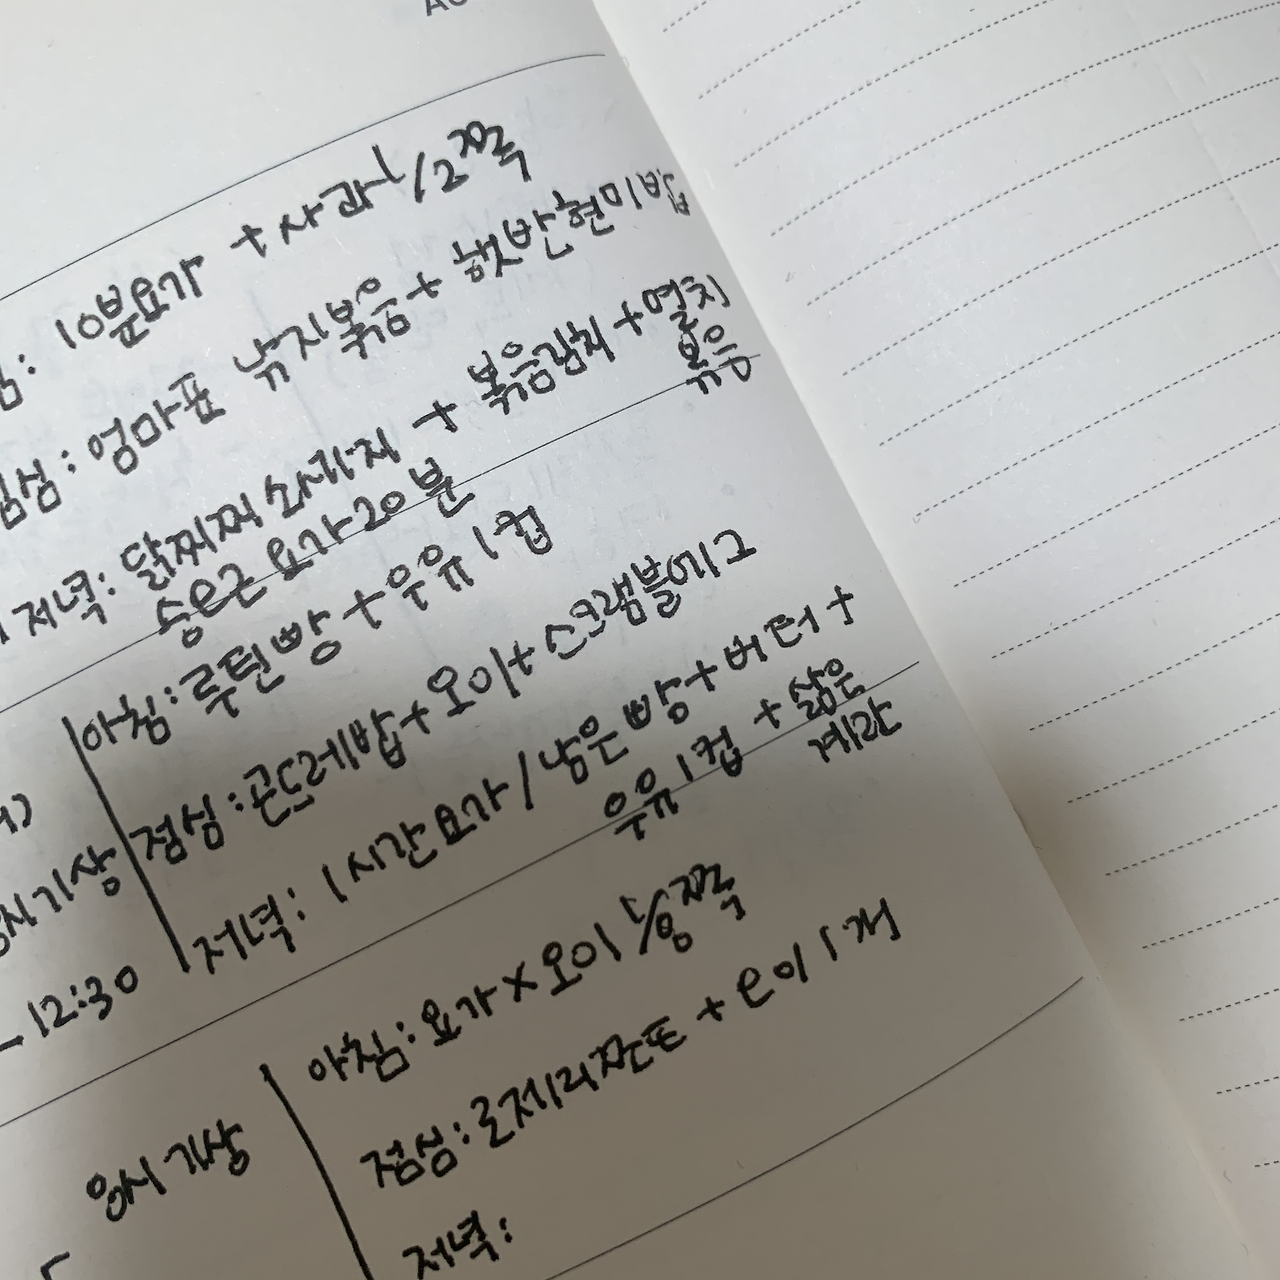 : 10분요가 + 사과 1/2쪽
점심: 엄마표 낚지볶음 + 햇반현미밥
저녁: 닭찌찌 소세지 + 볶음김치 + 멸치
볶음
송은근 요가 20분
아침: 루틴빵 + 우유 1컵
점심: 곤드레밥 + 오이 + 스크램블에그
저녁: 1시간요가 / 남은 빵 + 버터 +
우유 1컵 + 삶은
계란
시기상
12:30
아침: 요가 x 오이 쪽
점심: 로제리쪼또 + 오이 1개
저녁:
시 기상